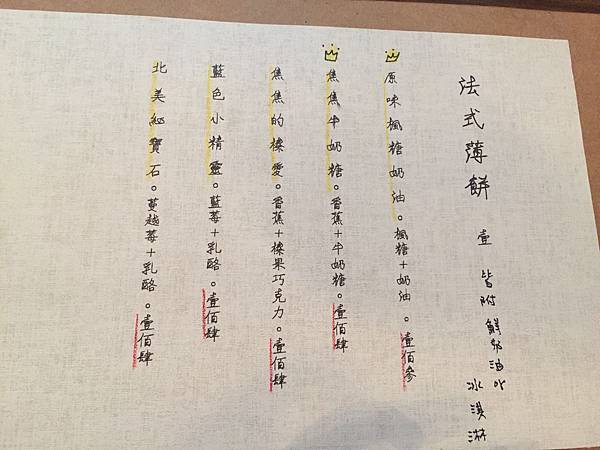 法式薄餅 壹 皆附鮮奶油
冰淇淋
原味楓糖奶油。楓糖+奶油。壹佰參
焦焦牛奶糖。香蕉+牛奶糖。壹佰肆
焦焦的榛愛。香蕉+榛果巧克力。壹佰肆
藍色小精靈。藍莓+乳酪。壹佰肆
北美紅寶石。蔓越莓+乳酪。壹佰肆